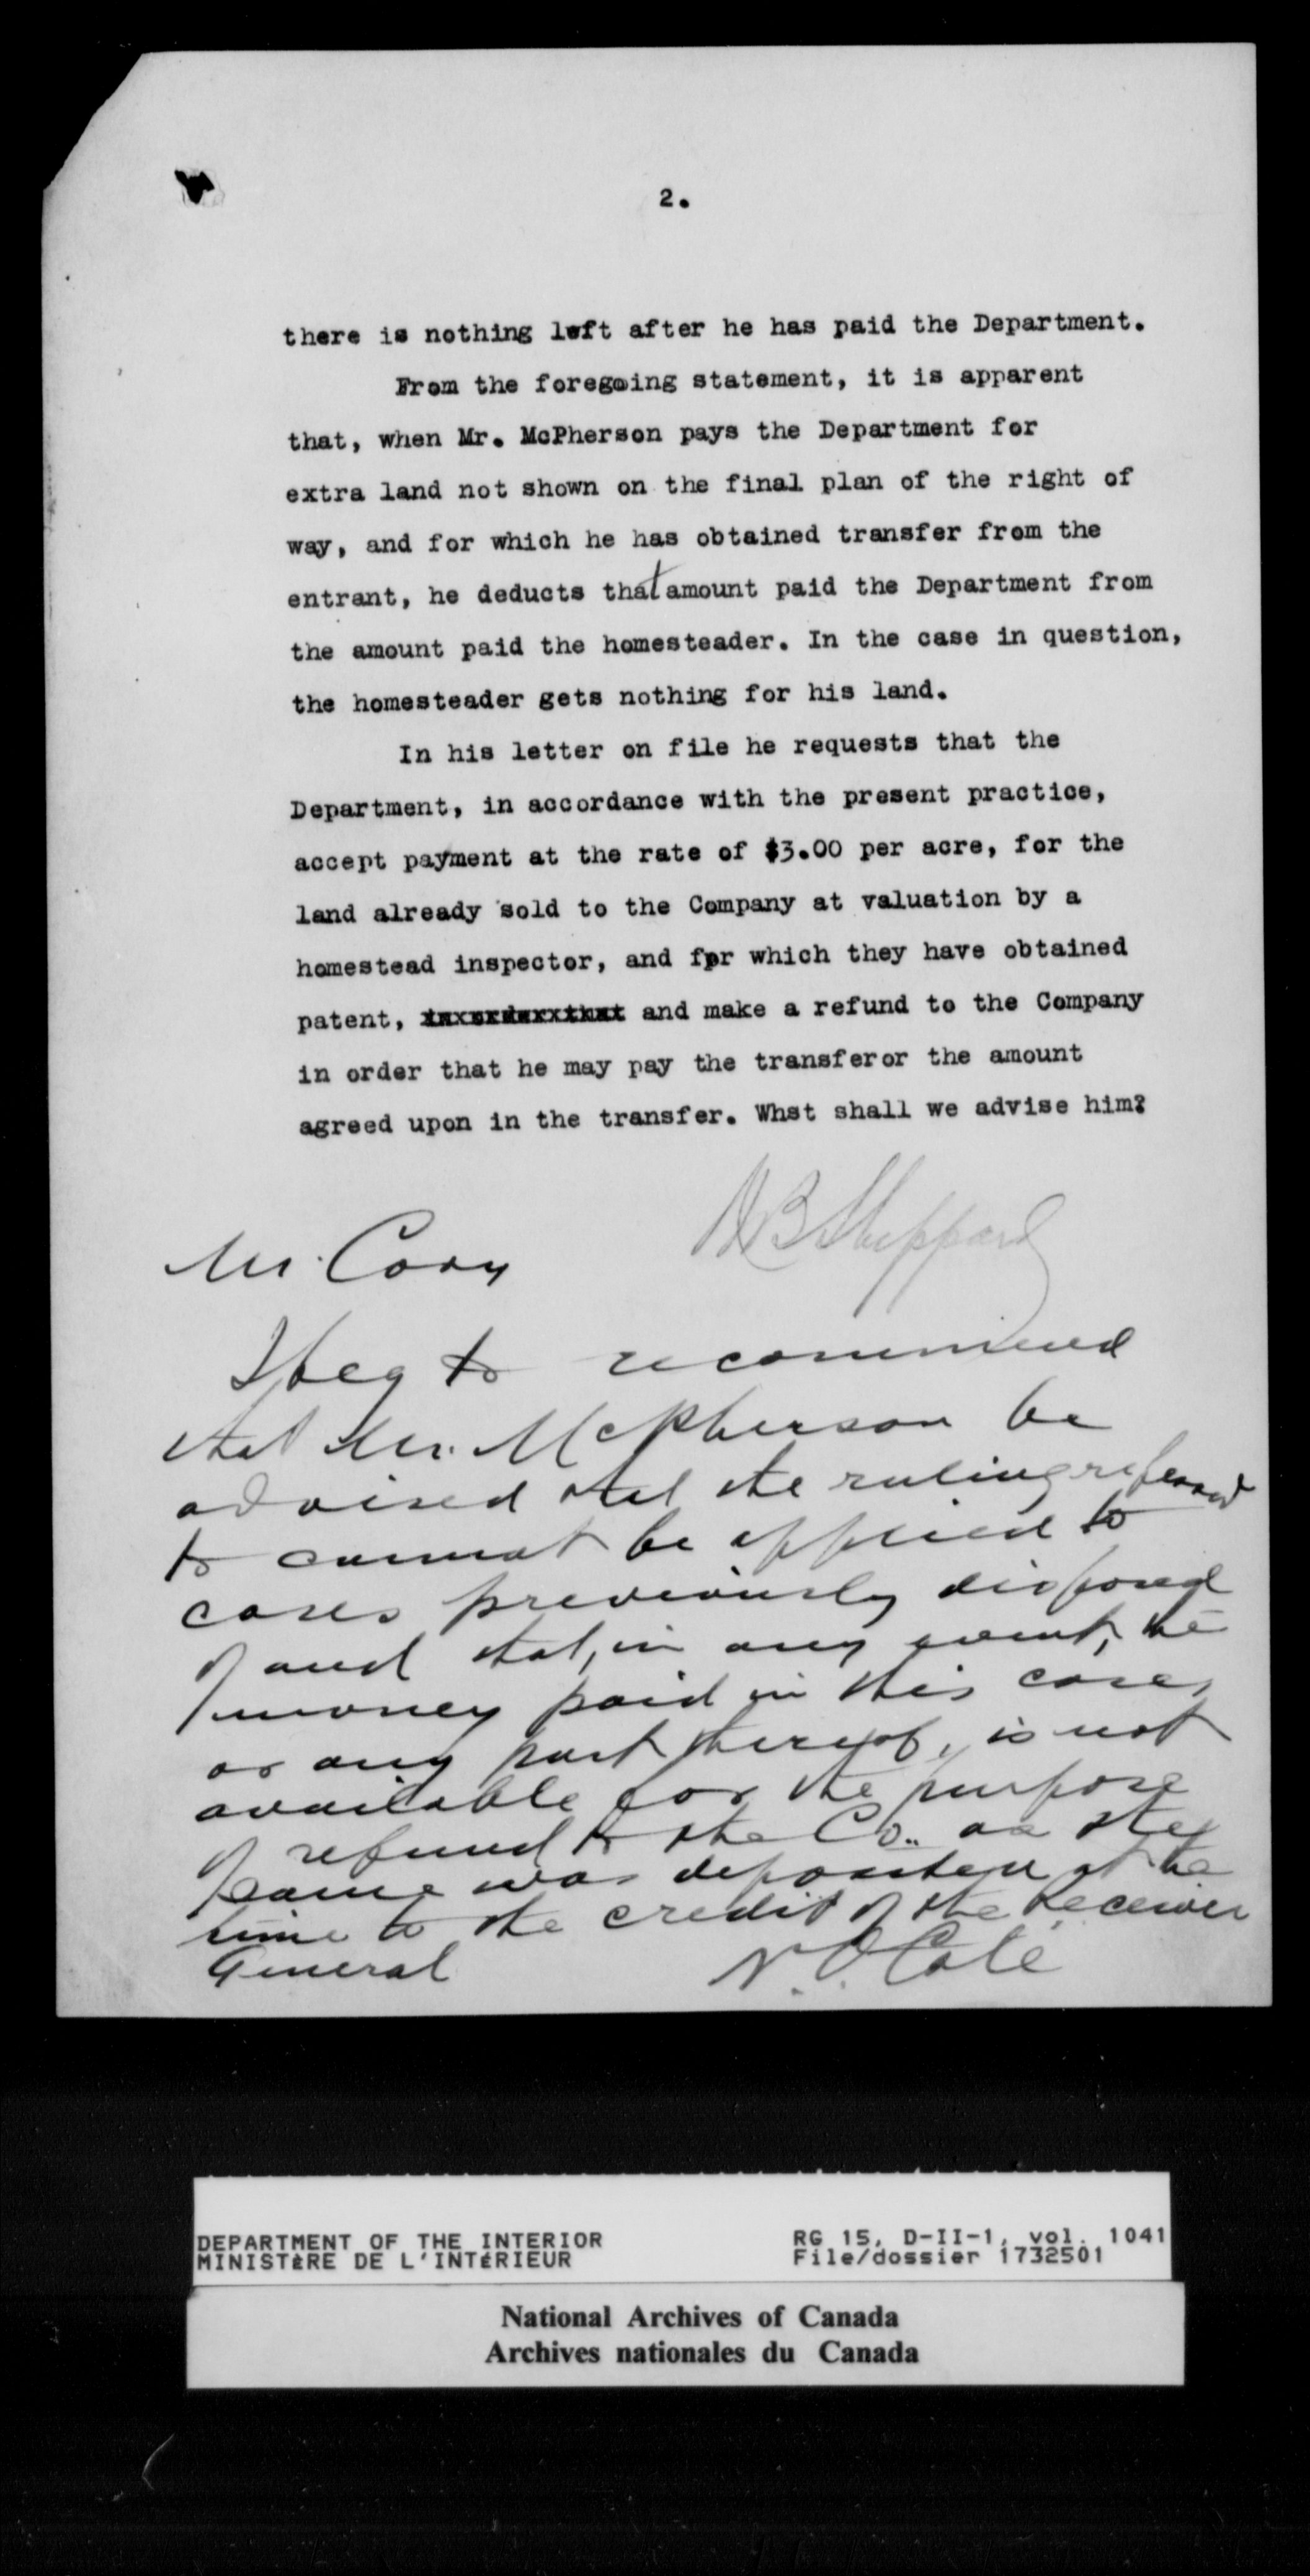 2.
there is nothing left after he has paid the Department.
From the foregoing statement, it is apparent
that, when Mr. McPherson pays the Department for
extra land not shown on the final plan of the right of
way, and for which he has obtained transfer from the
entrant, he deducts that amount paid the Department from
the amount paid the homesteader. In the case in question,
the homesteader gets nothing for his land.
In his letter on file he requests that the
Department, in accordance with the present practice,
accept payment at the rate of $3.00 per acre, for the
land already sold to the Company at valuation by a
homestead inspector, and for which they have obtained
patent, and make a refund to the Company
in order that he may pay the transferor the amount
agreed upon in the transfer. Whst shall we advise him?
B Sheppard
Mr. Cory
I beg to recommend
that Mr. McPherson be
advised that the ruling referred
to cannot be applied to
cases previously disposed
of and that, in any event, the
money paid in this case,
or any part thereof, is not
available for the purpose
of refund to the Co.. as the
same was deposited at the
time to the credit of the Receiver
General
N. O. Coté
DEPARTMENT OF THE INTERIOR
MINISTÈRE DE L'INTÉRIEUR
RG 15, D-II-1, vol. 1041
File/dossier 1732501
National Archives of Canada
Archives nationales du Canada